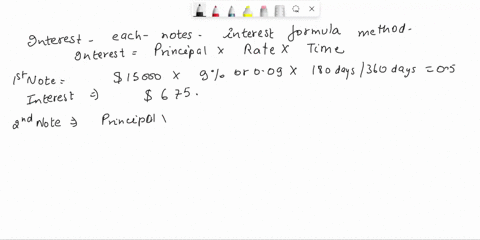 Interest - each - notes - interest formula method -
Interest = Principal × Rate × Time
1st Note = $15000 × 9% or 0.09 × 180 days/360 days = 0.5
Interest => $675.
2nd Note => Principal \